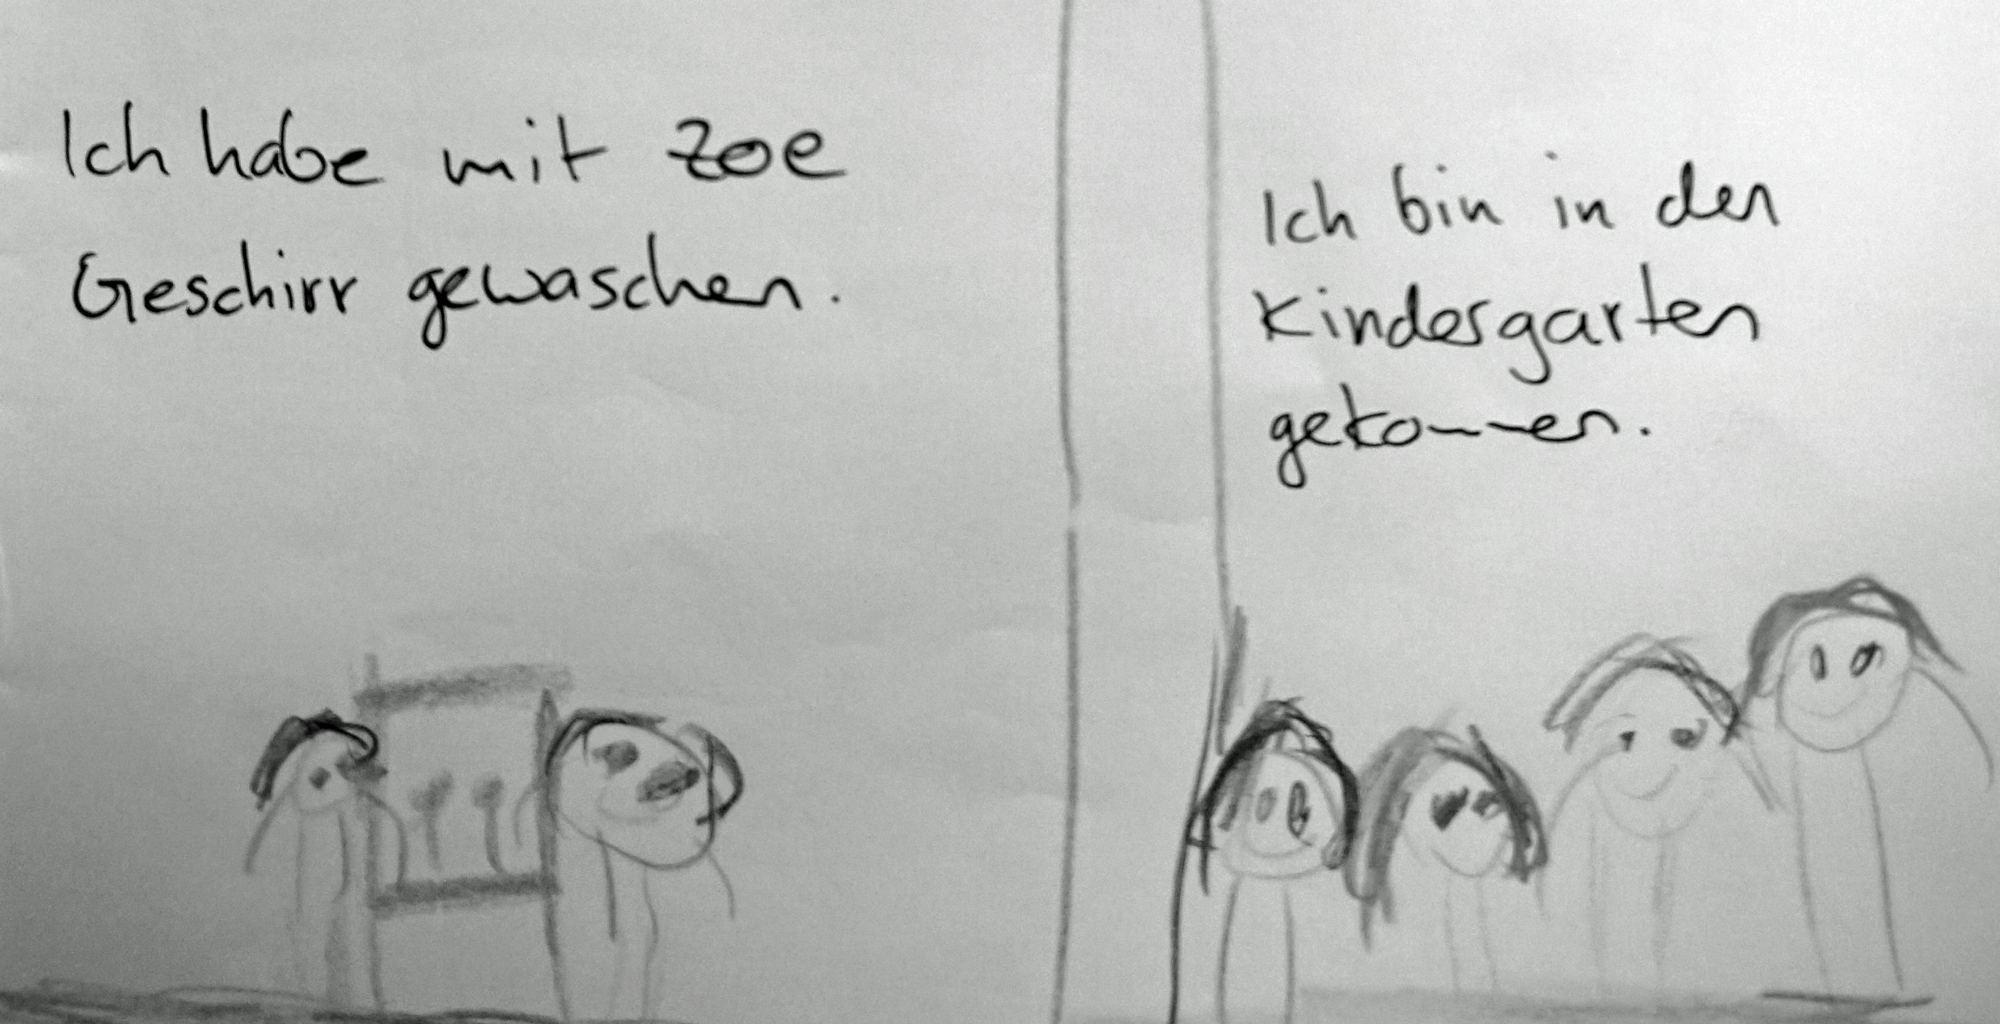 Ich habe mit Zoe
Geschirr gewaschen.
Ich bin in den
Kindergarten
gekommen.